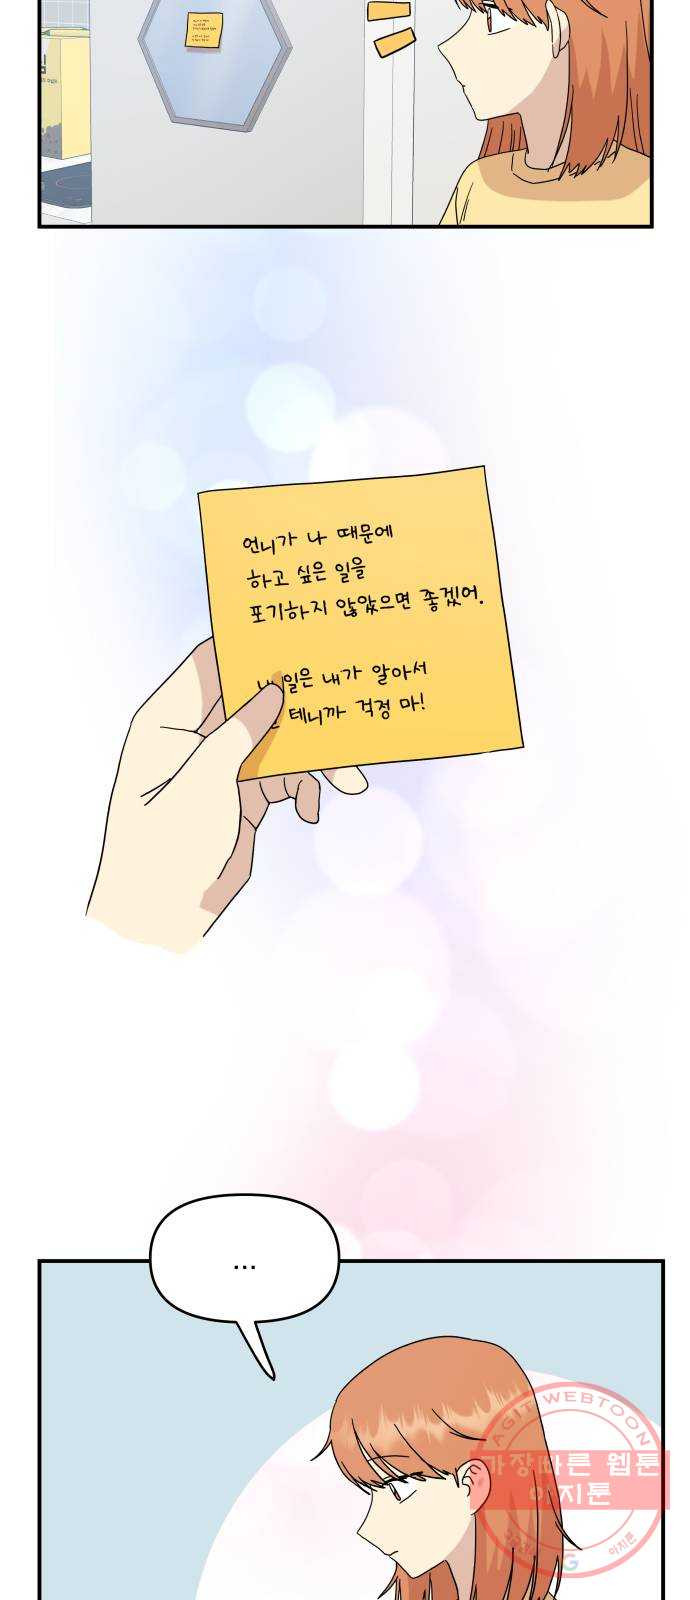 언니가 나 때문에
하고 싶은 일을
포기하지 않았으면 좋겠어.
일은 내가 알아서
테니까 걱정 마!
...
AGIT WEBTOON
가장빠른 웹툰
아지툰
아지툰